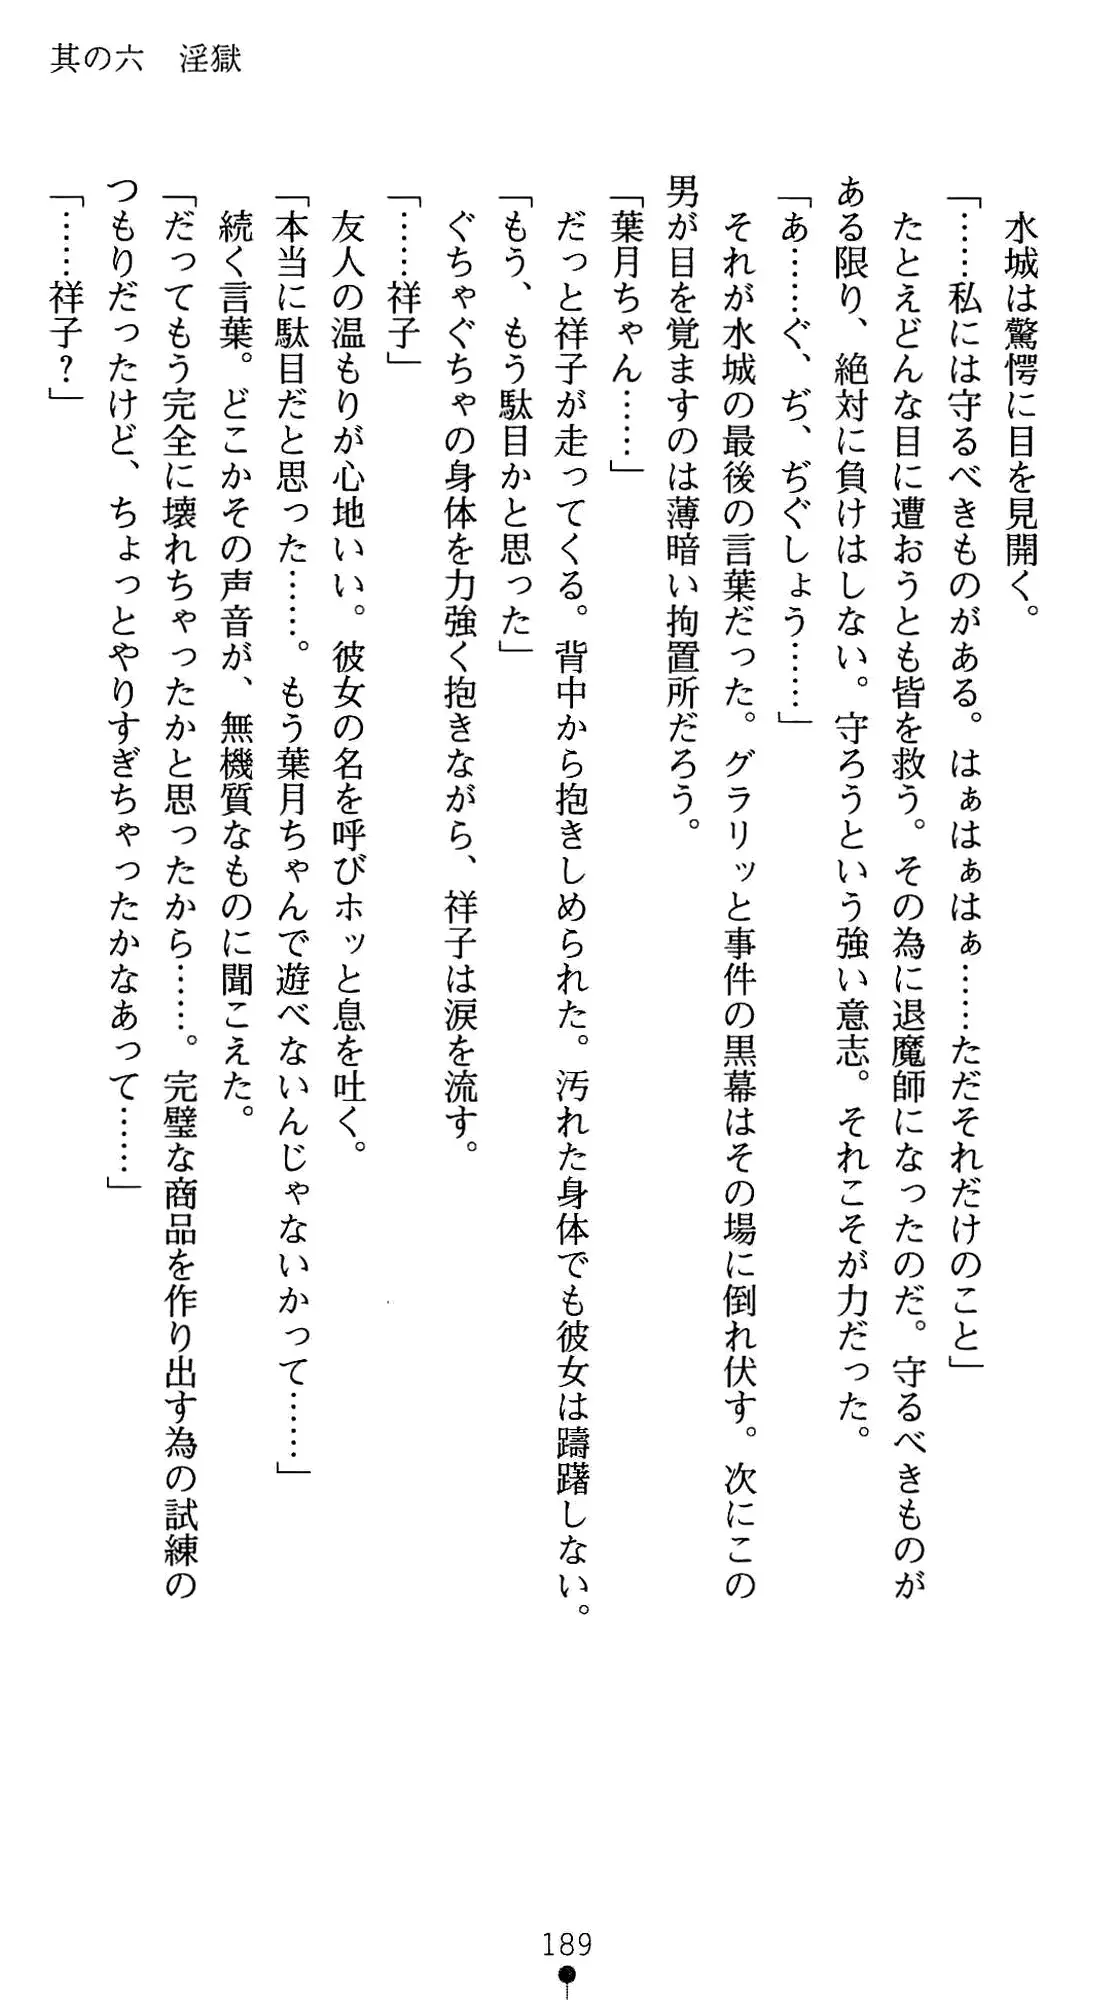 其の六　淫獄
　水城は驚愕に目を見開く。
「……私には守るべきものがある。はぁはぁはぁ……ただそれだけのこと」
　たとえどんな目に遭おうとも皆を救う。その為に退魔師になったのだ。守るべきものが
ある限り、絶対に負けはしない。守ろうという強い意志。それこそが力だった。
「あ……ぐ、ぢ、ぢぐしょう……」
　それが水城の最後の言葉だった。グラリッと事件の黒幕はその場に倒れ伏す。次にこの
男が目を覚ますのは薄暗い拘置所だろう。
「葉月ちゃん……」
　だっと祥子が走ってくる。背中から抱きしめられた。汚れた身体でも彼女は躊躇しない。
「もう、もう駄目かと思った」
　ぐちゃぐちゃの身体を力強く抱きながら、祥子は涙を流す。
「……祥子」
　友人の温もりが心地いい。彼女の名を呼びホッと息を吐く。
「本当に駄目だと思った……。もう葉月ちゃんで遊べないんじゃないかって……」
　続く言葉。どこかその声音が、無機質なものに聞こえた。
「だってもう完全に壊れちゃったかと思ったから……。完璧な商品を作り出す為の試練の
つもりだったけど、ちょっとやりすぎちゃったかなあって……」
「……祥子？」
189